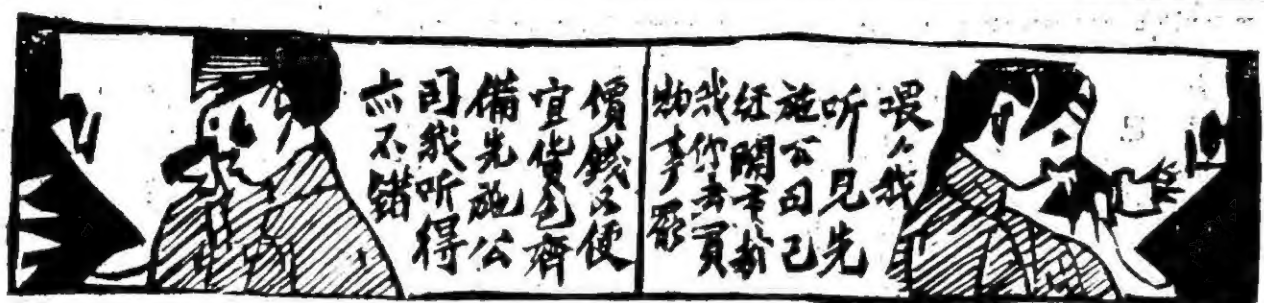 喂々我
听見先
施公司己
經開
你去買
物事罷
價錢又便
宜貨色齊
備先施公
司我听得
亦不錯